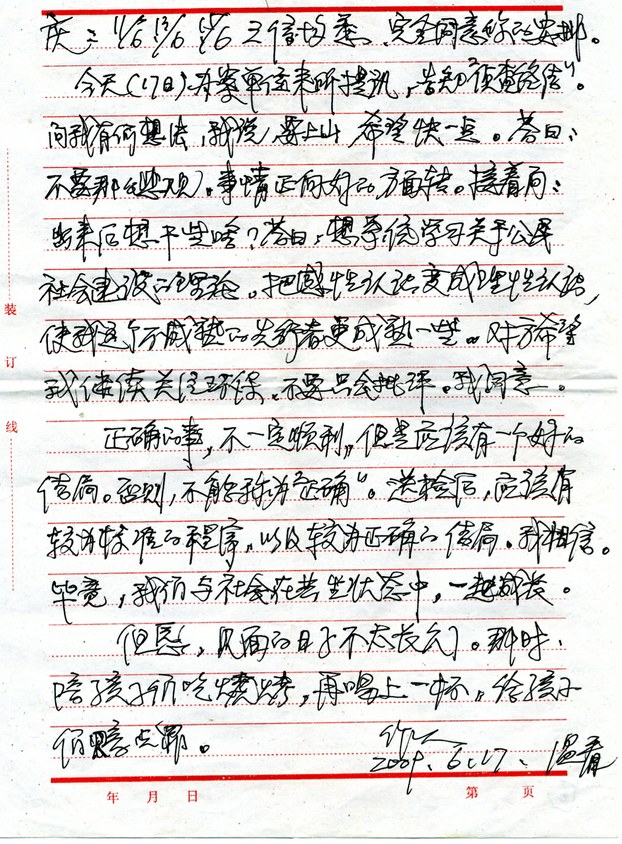 庆：11/6 13/6 15/6 三信均悉，完全同意你的安排。
今天（17日）办案单位来所提讯，告知“侦查终结”。
问我有何想法，我说，要上山 希望快一点。答曰：
不要那么悲观，事情正向好的方面转。接着问：
出来后想干些啥？答曰：想系统学习关于公民
社会建设的理论。把感性认识变成理性认识，
使我这个不成熟的先行者更成熟一些。对方希望
我继续关注环保，不要只会批评。我同意。
正确的事，不一定顺利，但是应该有一个好的
结局。否则，不能称为“正确”。送检后，应该有
较为标准的程序，以及较为正确的结局。我相信。
毕竟，我们与社会在共生状态中，一起成长。
但愿，见面的日子不太长久了。那时，
陪孩子们吃烧烤，再喝上一杯，给孩子
们赔点罪。
2009.6.17.
装
订
线
年 月 日
第 页